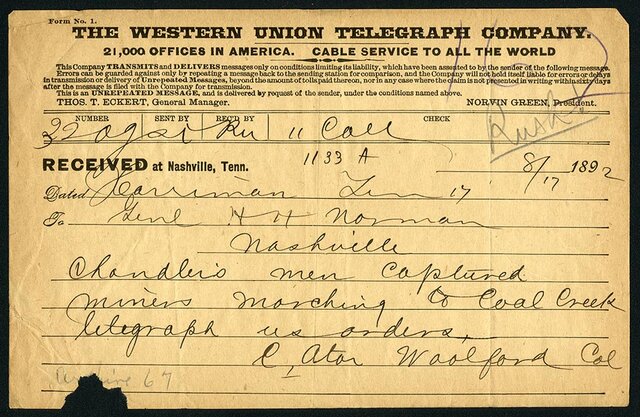 Form No. 1.
THE WESTERN UNION TELEGRAPH COMPANY.
21,000 OFFICES IN AMERICA. CABLE SERVICE TO ALL THE WORLD
This Company TRANSMITS and DELIVERS messages only on conditions limiting its liability, which have been assented to by the sender of the following message.
Errors can be guarded against only by repeating a message back to the sending station for comparison, and the Company will not hold itself liable for errors or delays
in transmission or delivery of Unrepeated Messages, beyond the amount of tolls paid thereon, nor in any case where the claim is not presented in writing within sixty days
after the message is filed with the Company for transmission.
This is an UNREPEATED MESSAGE, and is delivered by request of the sender, under the conditions named above.
THOS. T. ECKERT, General Manager. NORVIN GREEN, President.
Rush
NUMBER SENT BY REC'D BY CHECK
11 Coll
RECEIVED at Nashville, Tenn. 1133 A 8/17 1892
Dated Harriman Tenn 17
To Genl H H Norman
Nashville
Chandler's men captured
miners marching to Coal Creek
telegraph us orders,
C, Ator Woolford Col
67